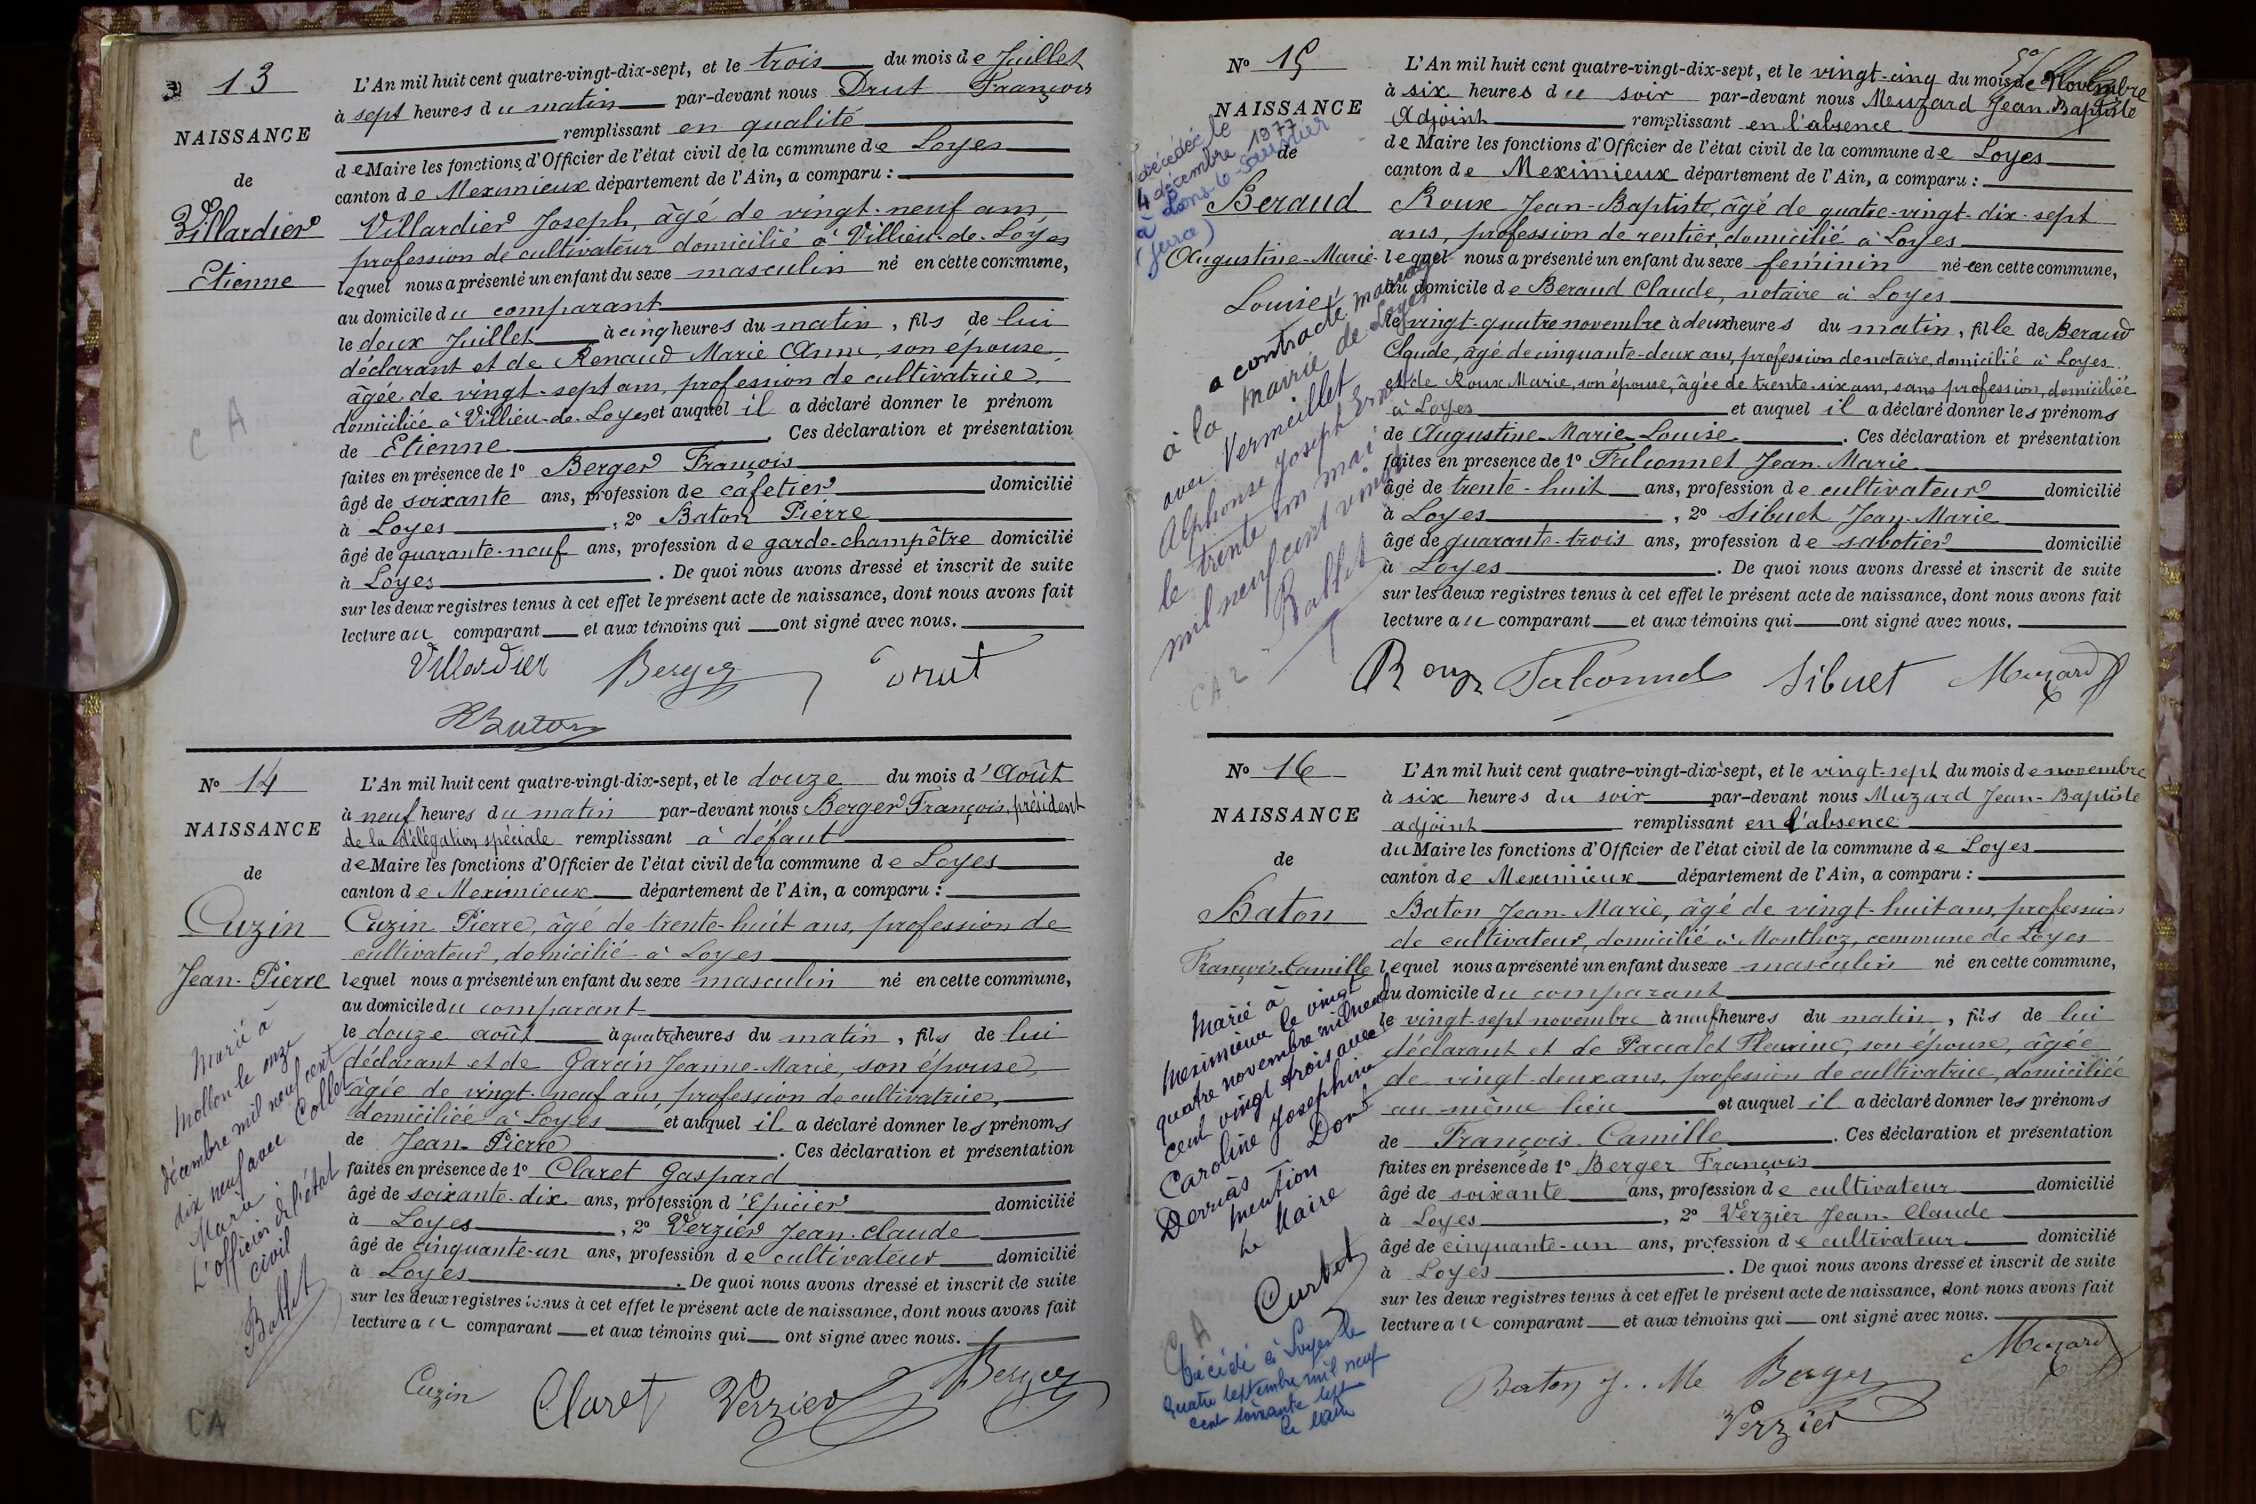 13
NAISSANCE
de
Villardier
Etienne
L'An mil huit cent quatre-vingt-dix-sept, et le trois du mois de Juillet
à sept heures du matin par-devant nous Drut François
remplissant en qualité
de Maire les fonctions d'Officier de l'état civil de la commune de Loyes
canton de Meximieux département de l'Ain, a comparu :
Villardier Joseph, âgé de vingt-neuf ans
profession de cultivateur domicilié à Villieu-de-Loyes
lequel nous a présenté un enfant du sexe masculin né en cette commune,
au domicile du comparant
le deux Juillet à cinq heures du matin, fils de lui
déclarant et de Renaud Marie Anne, son épouse,
âgée de vingt-sept ans, profession de cultivatrice,
domiciliée à Villieu-de-Loyes et auquel il a déclaré donner le prénom
de Etienne. Ces déclaration et présentation
faites en présence de 1º Berger François
âgé de soixante ans, profession de cafetier domicilié
à Loyes, 2º Baton Pierre
âgé de quarante-neuf ans, profession de garde-champêtre domicilié
à Loyes. De quoi nous avons dressé et inscrit de suite
sur les deux registres tenus à cet effet le présent acte de naissance, dont nous avons fait
lecture au comparant et aux témoins qui ont signé avec nous.
Villardier Berger Drut
Baton
C A
Nº 14
NAISSANCE
de
Cuzin
Jean-Pierre
Marié à
Mollon le onze
décembre mil neuf cent
dix neuf avec Collet
Maria
L'officier de l'état
civil
Ballet
CA
L'An mil huit cent quatre-vingt-dix-sept, et le douze du mois d'Août
à neuf heures du matin par-devant nous Berger François, président
de la délégation spéciale remplissant à défaut
de Maire les fonctions d'Officier de l'état civil de la commune de Loyes
canton de Meximieux département de l'Ain, a comparu :
Cuzin Pierre, âgé de trente-huit ans, profession de
cultivateur, domicilié à Loyes
lequel nous a présenté un enfant du sexe masculin né en cette commune,
au domicile du comparant
le douze août à quatre heures du matin, fils de lui
déclarant et de Garcin Jeanne-Marie, son épouse,
âgée de vingt-neuf ans, profession de cultivatrice,
domiciliée à Loyes et auquel il a déclaré donner les prénoms
de Jean-Pierre. Ces déclaration et présentation
faites en présence de 1º Claret Gaspard
âgé de soixante-dix ans, profession d'Epicier domicilié
à Loyes, 2º Verzier Jean-Claude
âgé de cinquante-un ans, profession de cultivateur domicilié
à Loyes. De quoi nous avons dressé et inscrit de suite
sur les deux registres tenus à cet effet le présent acte de naissance, dont nous avons fait
lecture au comparant et aux témoins qui ont signé avec nous.
Cuzin Claret Verzier Berger
Nº 15
NAISSANCE
de
Beraud
Augustine-Marie-
Louise
décédée le
4 décembre 1977
à Lons-le-Saunier
(Jura)
a contracté mariage
à la mairie de Loyes
avec Vermeillet
Alphonse Joseph Ernest
le trente un mai
mil neuf cent vingt
Ballet
CA 2
L'An mil huit cent quatre-vingt-dix-sept, et le vingt-cinq du mois de Novembre
à six heures du soir par-devant nous Muzard Jean-Baptiste
Adjoint remplissant en l'absence
de Maire les fonctions d'Officier de l'état civil de la commune de Loyes
canton de Meximieux département de l'Ain, a comparu :
Roux Jean-Baptiste, âgé de quatre-vingt-dix-sept
ans, profession de rentier, domicilié à Loyes
lequel nous a présenté un enfant du sexe féminin né en cette commune,
au domicile de Beraud Claude, notaire à Loyes
le vingt-quatre novembre à deux heures du matin, fille de Beraud
Claude, âgé de cinquante-deux ans, profession de notaire, domicilié à Loyes
et de Roux Marie, son épouse, âgée de trente-six ans, sans profession, domiciliée
à Loyes et auquel il a déclaré donner les prénoms
de Augustine-Marie-Louise. Ces déclaration et présentation
faites en présence de 1º Falconnet Jean-Marie
âgé de trente-huit ans, profession de cultivateur domicilié
à Loyes, 2º Sibuet Jean-Marie
âgé de quarante-trois ans, profession de sabotier domicilié
à Loyes. De quoi nous avons dressé et inscrit de suite
sur les deux registres tenus à cet effet le présent acte de naissance, dont nous avons fait
lecture au comparant et aux témoins qui ont signé avec nous.
Roux Falconnet Sibuet Muzard
Nº 16
NAISSANCE
de
Baton
François-Camille
Marié à
Meximieux le vingt
quatre novembre mil neuf
cent vingt trois avec
Caroline Josephine
Derrias Dont
mention
Le Maire
Curbet
CA
Décédé à Loyes le
quatre septembre mil neuf
cent soixante sept
Le Maire
L'An mil huit cent quatre-vingt-dix-sept, et le vingt-sept du mois de novembre
à six heures du soir par-devant nous Muzard Jean-Baptiste
adjoint remplissant en l'absence
du Maire les fonctions d'Officier de l'état civil de la commune de Loyes
canton de Meximieux département de l'Ain, a comparu :
Baton Jean-Marie, âgé de vingt-huit ans, profession
de cultivateur, domicilié à Monthoz, commune de Loyes
lequel nous a présenté un enfant du sexe masculin né en cette commune,
au domicile du comparant
le vingt-sept novembre à neuf heures du matin, fils de lui
déclarant et de Pacalet Fleurine, son épouse, âgée
de vingt-deux ans, profession de cultivatrice, domiciliée
au même lieu et auquel il a déclaré donner les prénoms
de François-Camille. Ces déclaration et présentation
faites en présence de 1º Berger François
âgé de soixante ans, profession de cultivateur domicilié
à Loyes, 2º Verzier Jean-Claude
âgé de cinquante-un ans, profession de cultivateur domicilié
à Loyes. De quoi nous avons dressé et inscrit de suite
sur les deux registres tenus à cet effet le présent acte de naissance, dont nous avons fait
lecture au comparant et aux témoins qui ont signé avec nous.
Baton J. Me Berger Muzard
Verzier